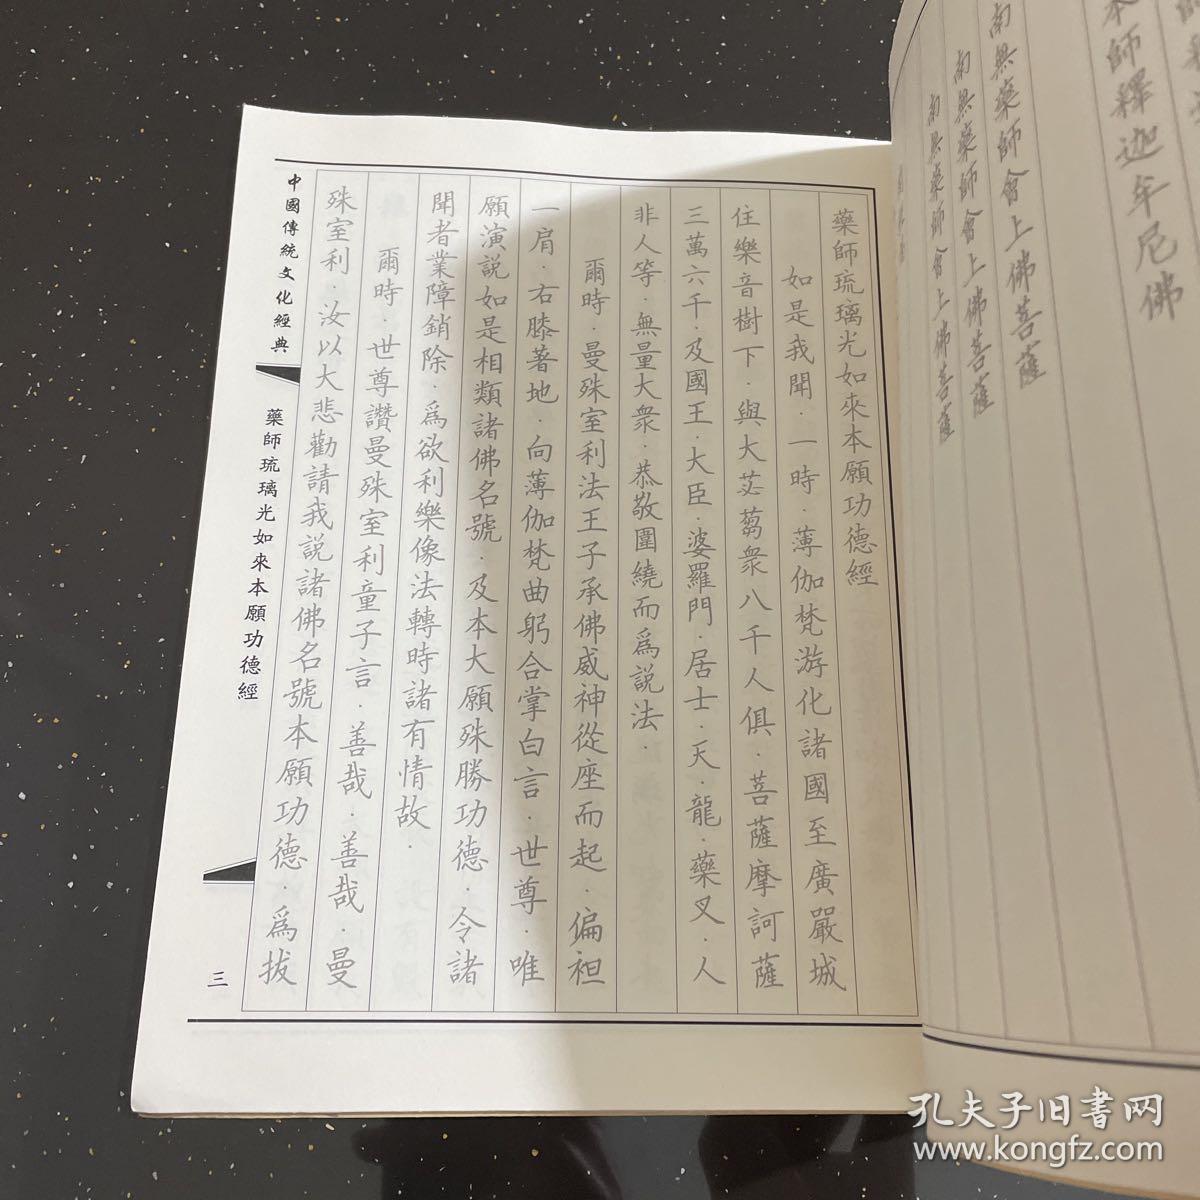 本師釋迦牟尼佛
南無藥師會上佛菩薩
南無藥師會上佛菩薩
南無藥師會上佛菩薩
藥師琉璃光如來本願功德經
如是我聞．一時．薄伽梵游化諸國至廣嚴城
住樂音樹下．與大苾芻衆八千人俱．菩薩摩訶薩
三萬六千．及國王．大臣．婆羅門．居士．天．龍．藥叉．人
非人等．無量大衆．恭敬圍繞而爲説法．
爾時．曼殊室利法王子承佛威神從座而起．偏袒
一肩．右膝著地．向薄伽梵曲躬合掌白言．世尊．唯
願演説如是相類諸佛名號．及本大願殊勝功德．令諸
聞者業障銷除．爲欲利樂像法轉時諸有情故．
爾時．世尊讚曼殊室利童子言．善哉．善哉．曼
殊室利．汝以大悲勸請我説諸佛名號本願功德．爲拔
中國傳統文化經典
藥師琉璃光如來本願功德經
三
孔夫子旧书网
www.kongfz.com